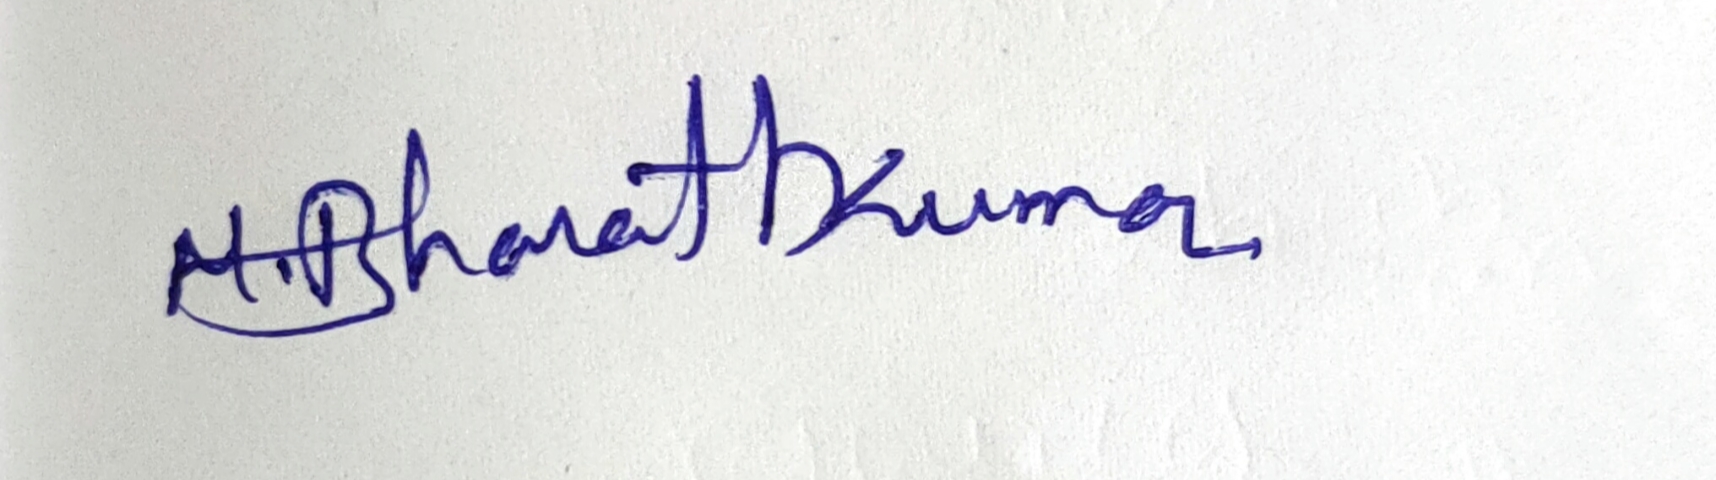 H. Bharath Kumar